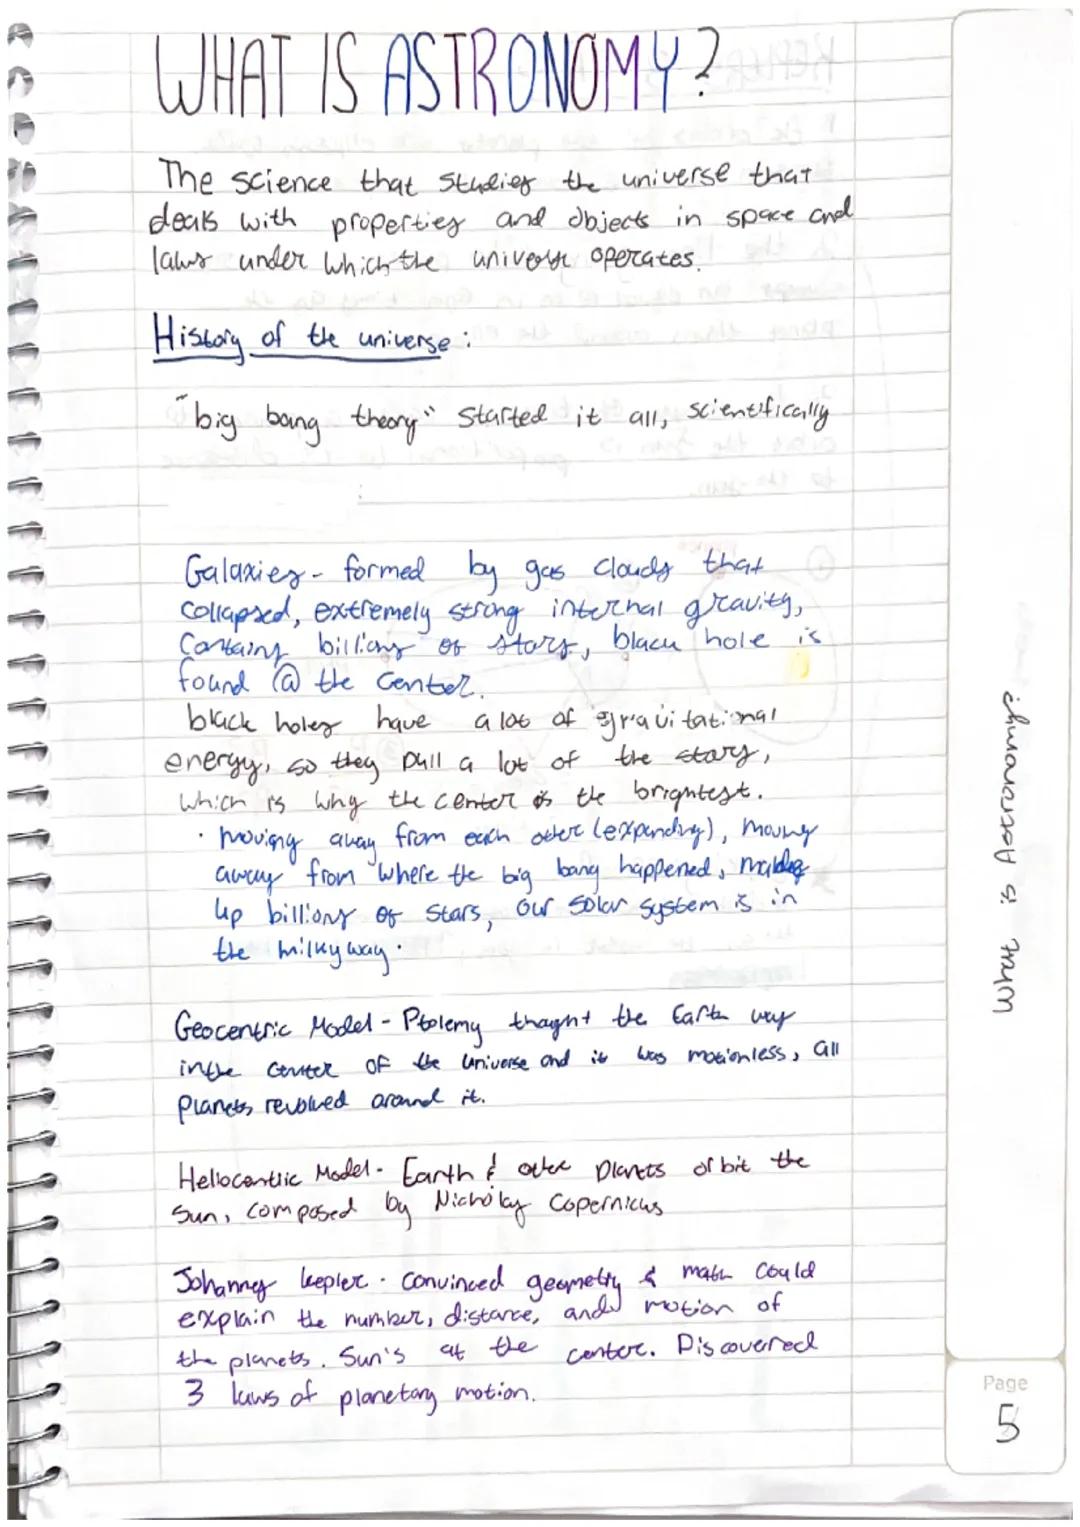 WHAT IS ASTRONOMY?
The science that studies the universe that
deals with properties and objects in space and
laws under which the universe operates.
History of the universe:
"big bang theory" started it all, scientifically
Galaxies - formed by gas clouds that
collapsed, extremely strong internal gravity,
contains billions of stars, black hole is
found @ the center.
black holes have a lot of gravitational
energy, so they pull a lot of the stars,
which is why the center is the brightest.
· moving away from each other (expanding), moving
away from where the big bang happened, making
up billions of stars, our solar system is in
the milky way.
Geocentric Model - Ptolemy thought the Earth was
in the center of the universe and it was motionless, all
planets revolved around it.
Heliocentric Model - Earth & other planets orbit the
sun, composed by Nicholas Copernicus
Johannes kepler - convinced geometry & math could
explain the number, distance, and motion of
the planets. Sun's at the center. Discovered
3 laws of planetary motion.
What is Astronomy?
Page
5